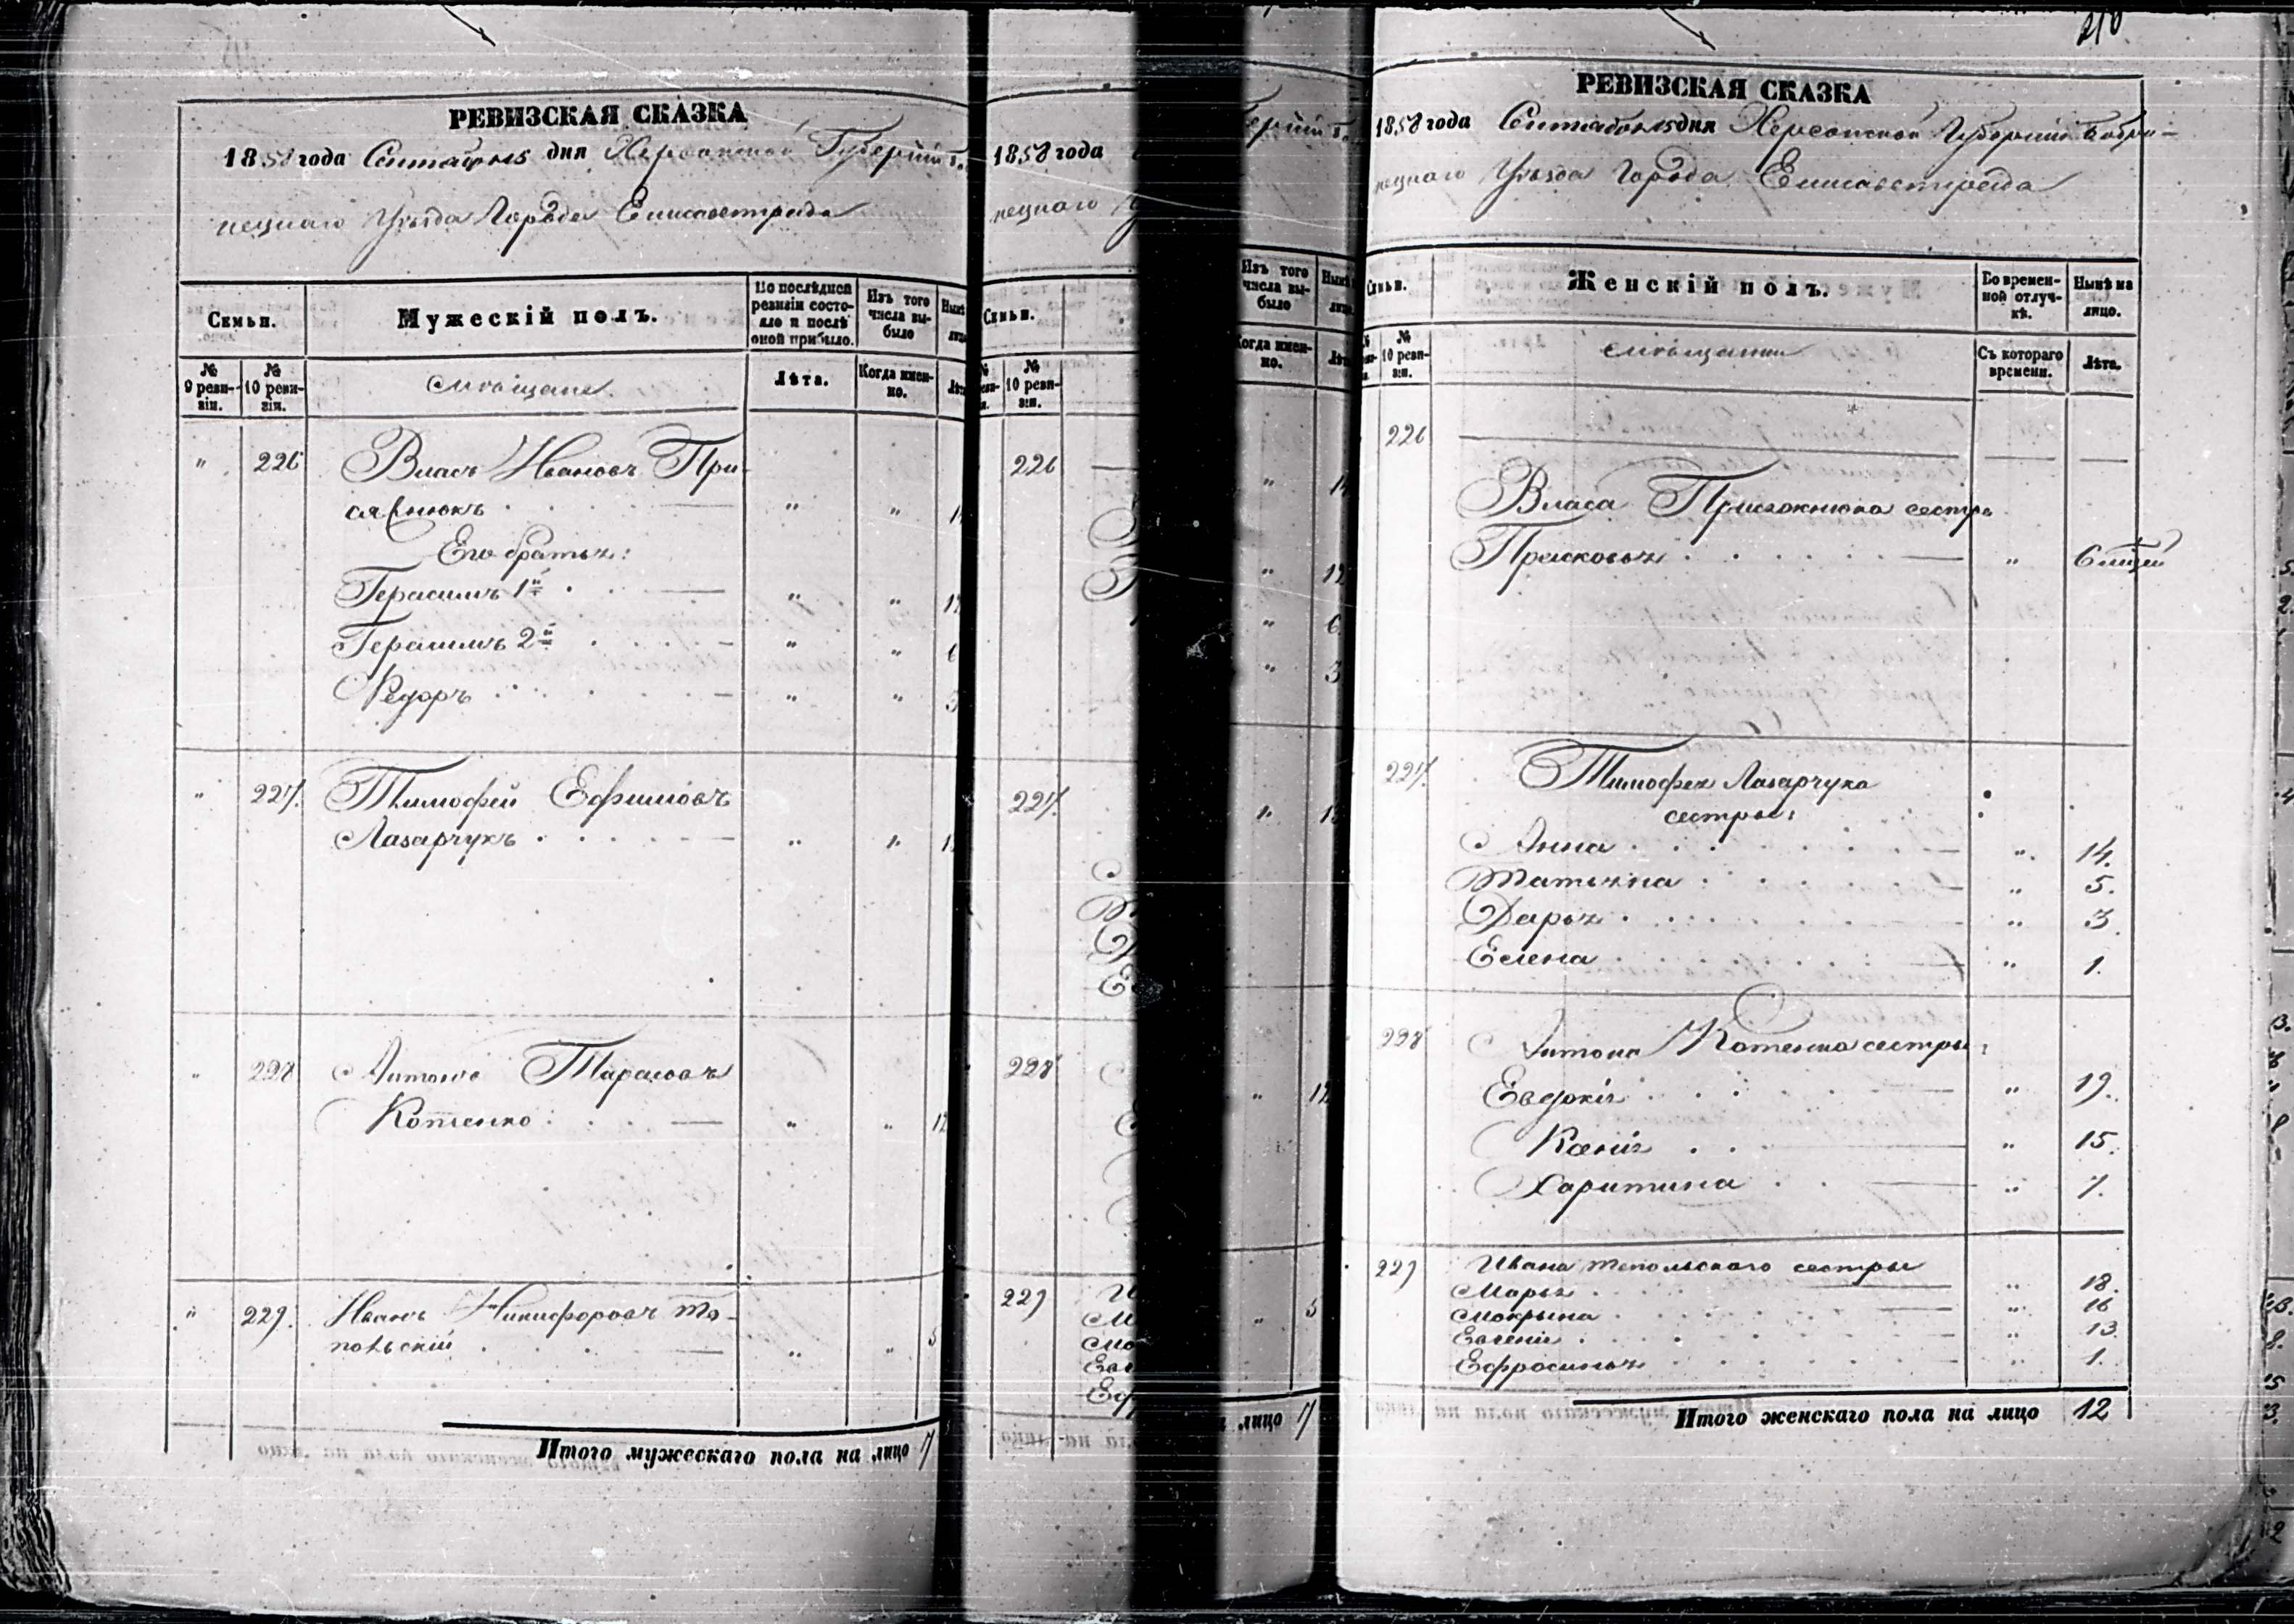 РЕВИЗСКАЯ СКАЗКА
1858 года Сентября дня Херсонской Губерніи
нецкаго Уѣзда Города Елисаветграда
Семьи.
Мужескій полъ.
По послѣдней ревизіи состояло и послѣ оной прибыло.
Изъ того числа выбыло
№ 9 ревизіи.
№ 10 ревизіи.
мѣщане
Лѣта.
Когда именно.
" 226 Власъ Ивановъ При-
" "
Его братья:
Герасимъ 1й " "
Герасимъ 2й " " 6
Федоръ " " 3
" 227. Тимофей Ефимовъ
Лазарчукъ " "
" 228 Антонъ Тарасовъ
Котенко " " 12
" 229. Иванъ Никифоровъ То-
польскій " " 5
Итого мужескаго пола на лицо 7
1858 года
нецкаго
Семьи.
№ 10 ревизіи.
226
227.
228
229
Изъ того числа выбыло
Когда именно.
" 12
" 6
" 3
" 12
" 5
лицо 7
210
РЕВИЗСКАЯ СКАЗКА
1858 года Сентября дня Херсонской Губерніи Бобри-
нецкаго Уѣзда Города Елисаветграда
Семьи.
Женскій полъ.
Во временной отлучкѣ.
Нынѣ на лицо.
№ 10 ревизіи.
мѣщанки
Съ котораго времени.
Лѣта.
226
Власа сестра
Прасковья "
227. Тимофея Лазарчука
сестры:
Анна " 14.
Татьяна " 5.
Дарья " 3.
Елена " 1.
228 Антона Котенка сестры:
Евдокія " 19.
Ксенія " 15.
Харитина " 7.
229 Ивана Топольскаго сестры
Марья " 18.
Мокрына " 16
Евгенія " 13.
Ефросинья " 1.
Итого женскаго пола на лицо 12